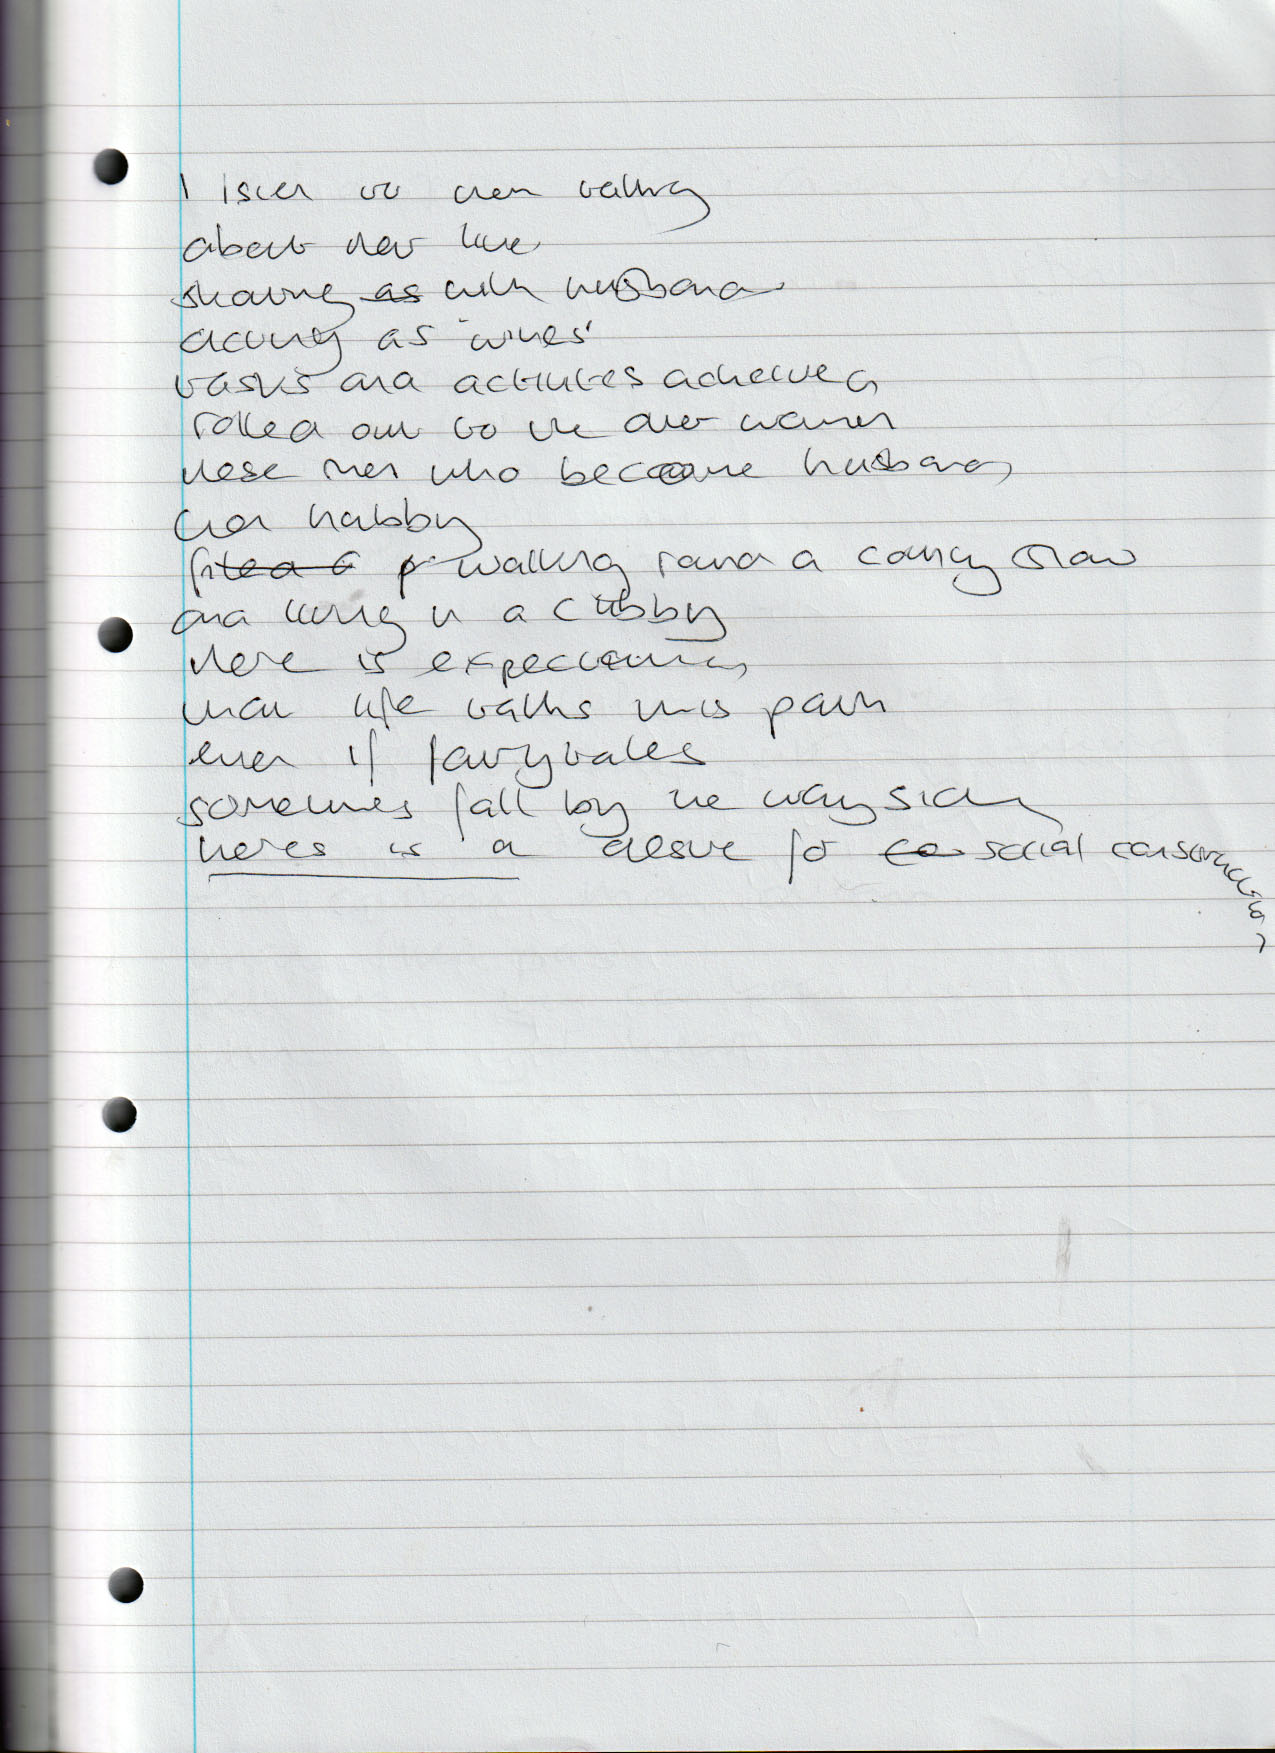 I listen to them talking
about their live
sharing as with husband
acting as 'wives'
tasks and activities achieved
rolled out to the other women
these men who become husbands
their hubby
walking round a county show
and living in a cubby
there is expectations
that life talks this path
even if fairytales
sometimes fall by the wayside
theres is a desire for co social constructions